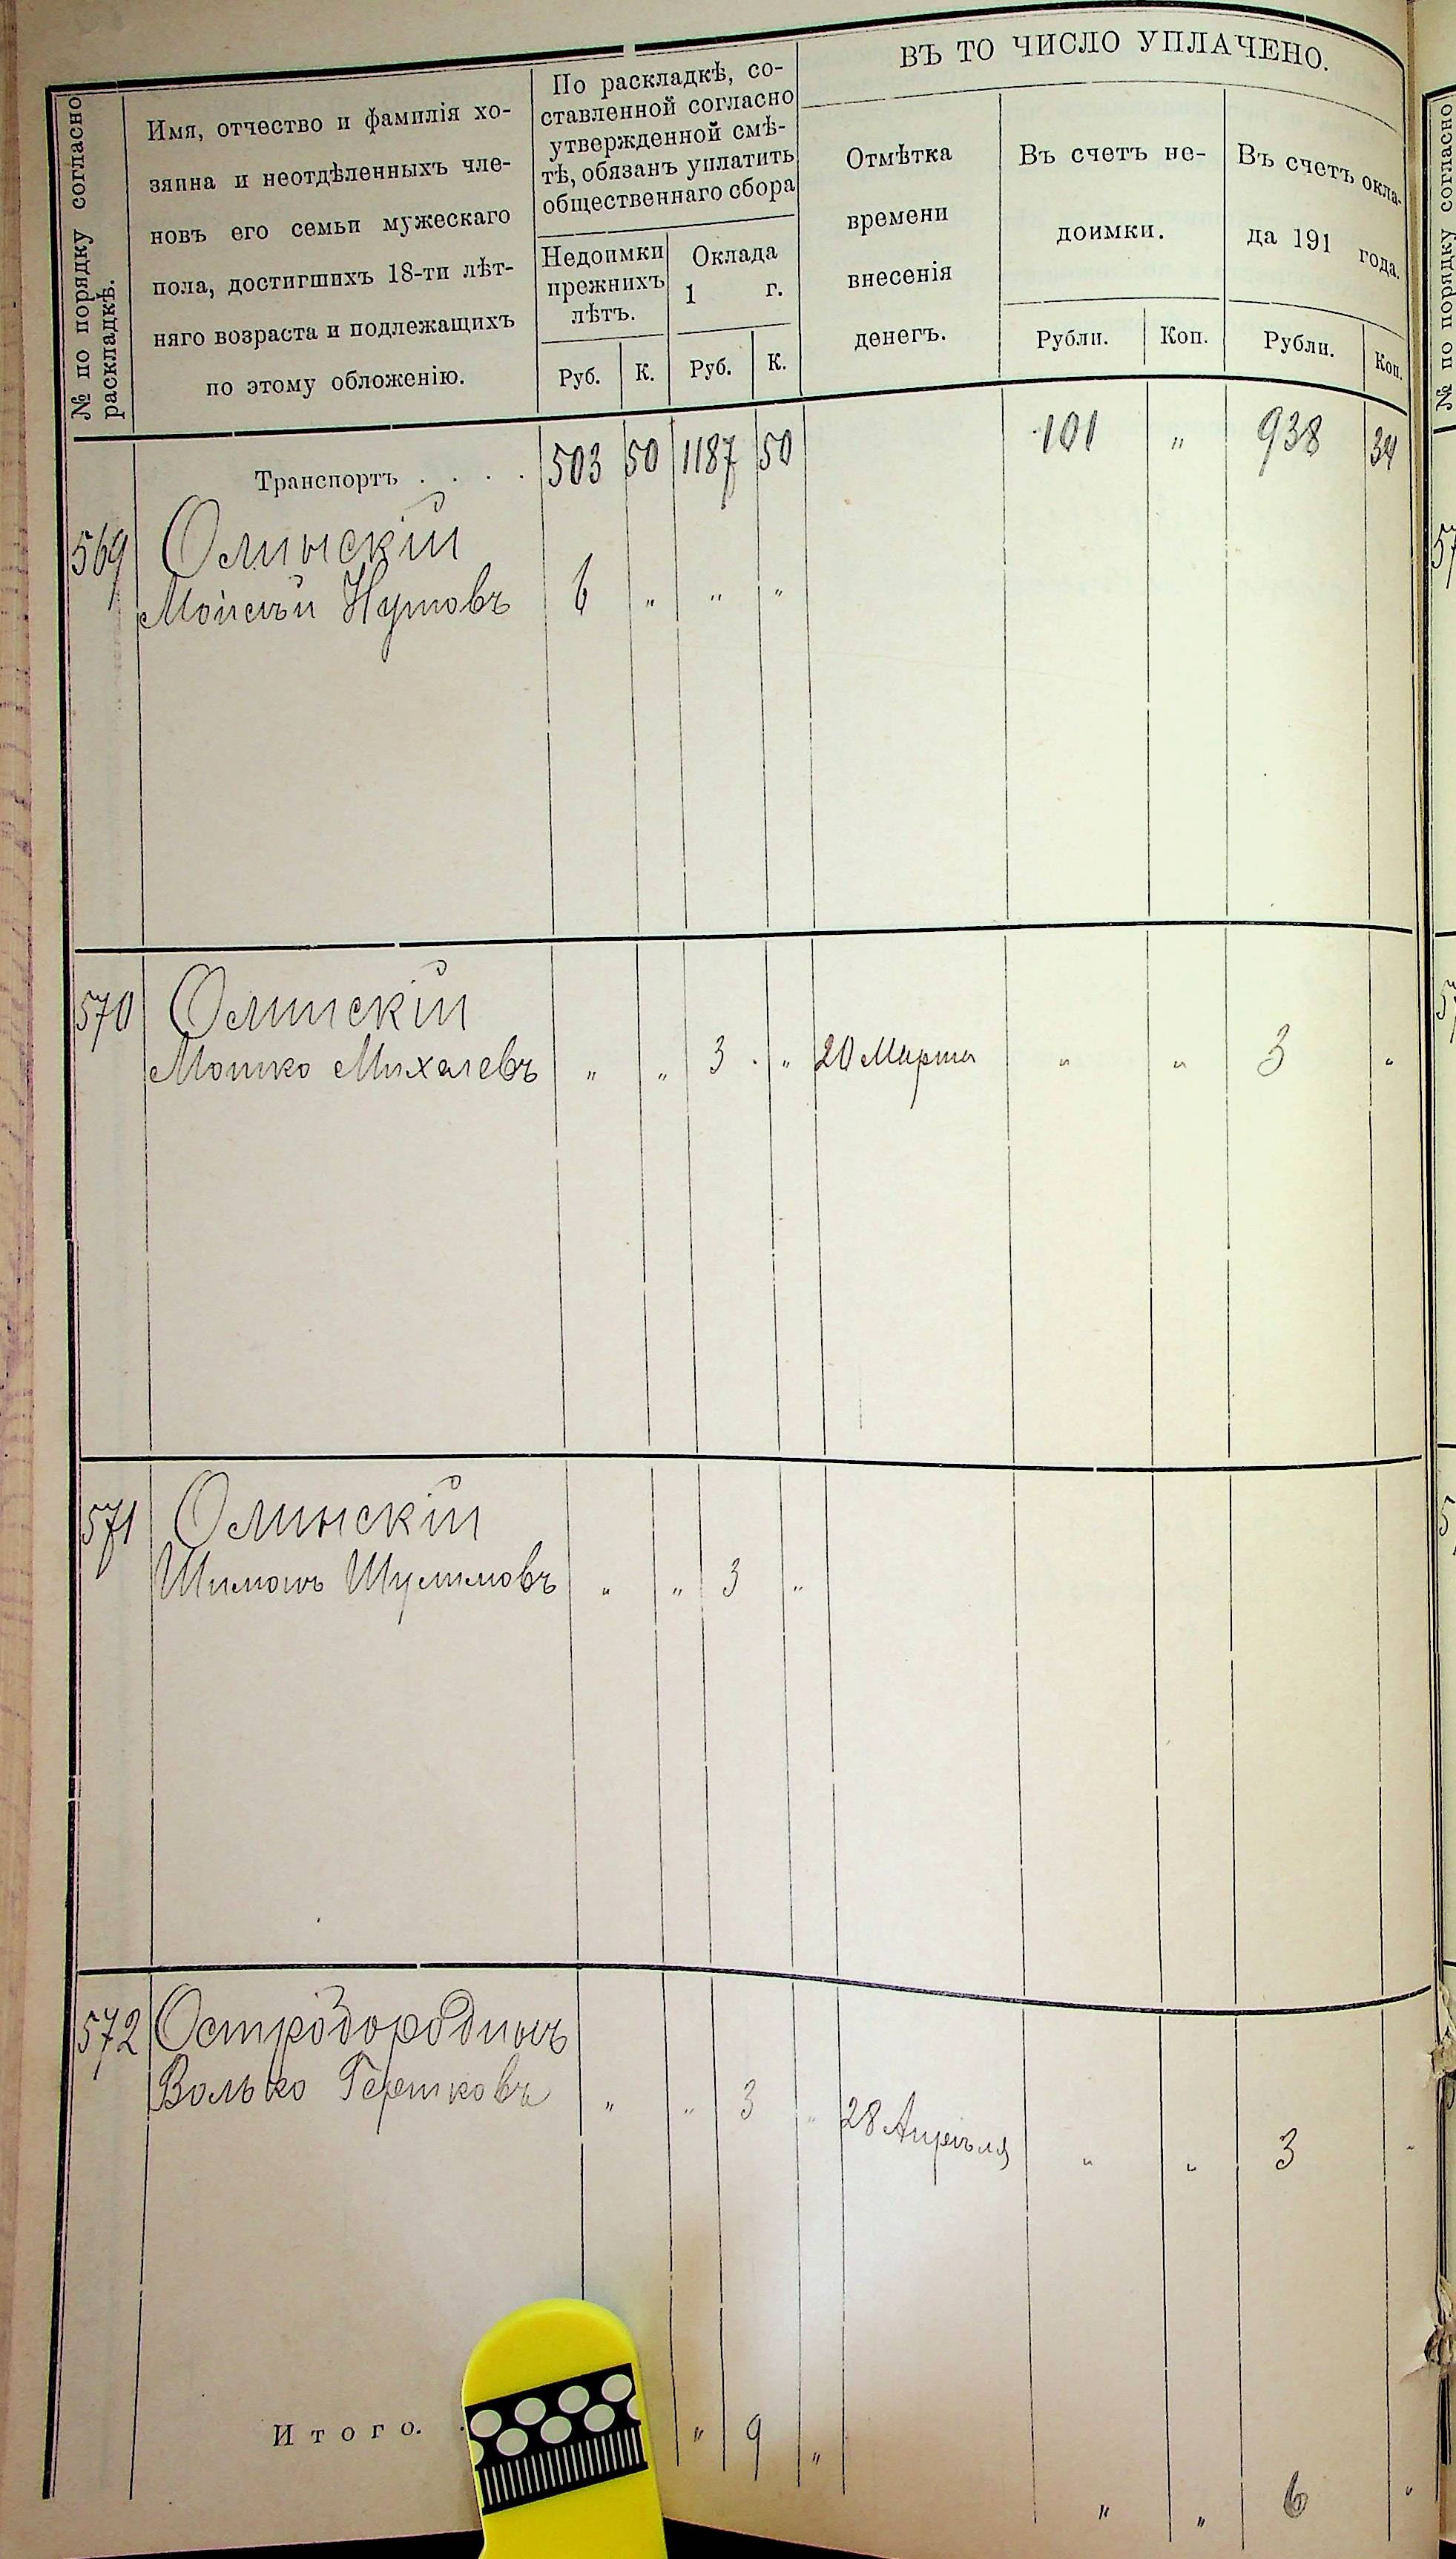 № по порядку согласно
раскладкѣ.
Имя, отчество и фамилія хо-
зяина и неотдѣленныхъ чле-
новъ его семьи мужескаго
пола, достигшихъ 18-ти лѣт-
няго возраста и подлежащихъ
по этому обложенію.
По раскладкѣ, со-
ставленной согласно
утвержденной смѣ-
тѣ, обязанъ уплатить
общественнаго сбора
Недоимки
прежнихъ
лѣтъ.
Оклада
1 г.
Руб. К. Руб. К.
ВЪ ТО ЧИСЛО УПЛАЧЕНО.
Отмѣтка
времени
внесенія
денегъ.
Въ счетъ не-
доимки.
Рубли. Коп.
Въ счетъ окла-
да 191 года.
Рубли. Коп.
Транспортъ . . . . 503 50 1187 50 101 „ 938 34
569 Олинскій
Мойсей Нутовъ 6 „ „ „
570 Олинскій
Мошко Михелевъ „ „ 3 „ 20 Марта „ „ 3 „
571 Олинскій
Шимонъ Шулимовъ „ „ 3 „
572
Волько Гершковъ „ „ 3 „ 28 Апрѣля „ „ 3 „
Итого. „ 9 „ „ „ 6 „
№ по порядку согласно